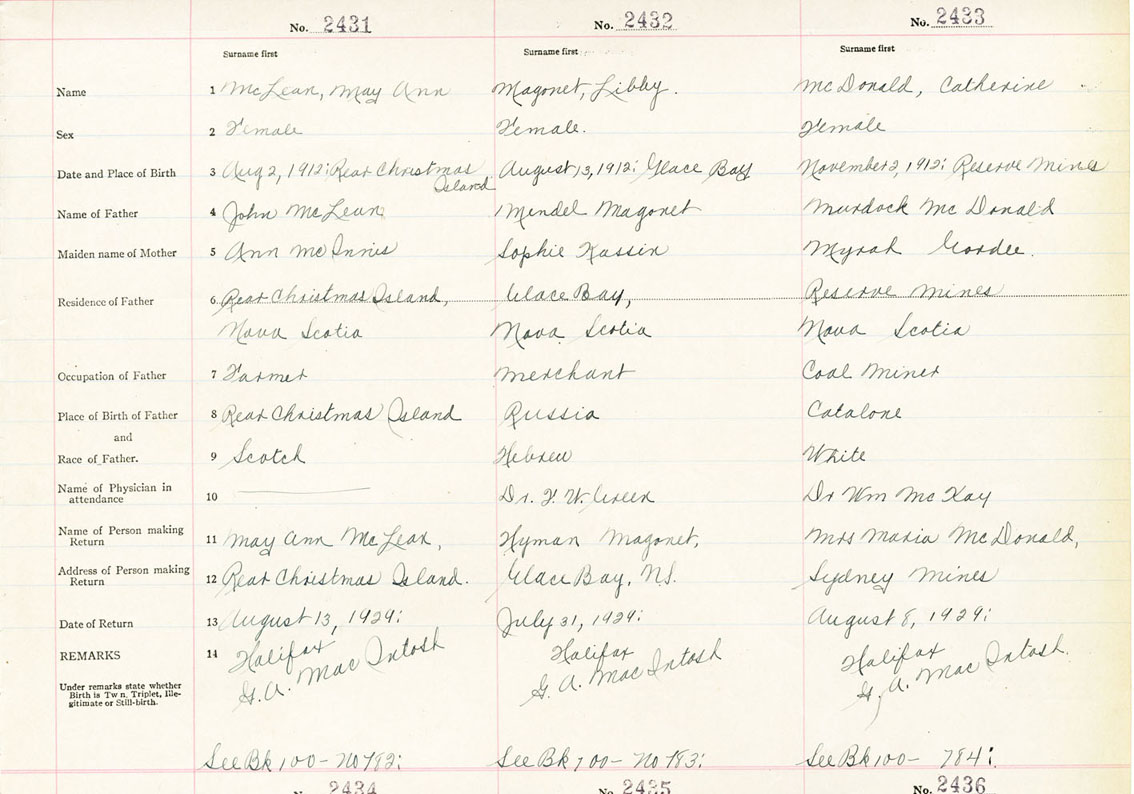 No. 2431 No. 2432 No. 2433
Surname first Surname first Surname first
Name 1 McLean, May Ann Magonet, Libby. McDonald, Catherine
Sex 2 Female Female. Female
Date and Place of Birth 3 Aug 2, 1912: Rear Christmas August 13, 1912: Glace Bay November 2, 1912: Reserve Mines
Island
Name of Father 4 John McLean Mendel Magonet Murdock McDonald
Maiden name of Mother 5 Ann McInnis Sophie Kassin Myrah
Residence of Father 6 Rear Christmas Island, Glace Bay, Reserve Mines
Nova Scotia Nova Scotia Nova Scotia
Occupation of Father 7 Farmer Merchant Coal Miner
Place of Birth of Father 8 Rear Christmas Island Russia Catalone
and
Race of Father. 9 Scotch Hebrew White
Name of Physician in
attendance 10 Dr. F. W. Green Dr Wm McKay
Name of Person making
Return 11 May Ann McLean, Hyman Magonet, Mrs Maria McDonald,
Address of Person making
Return 12 Rear Christmas Island. Glace Bay, N.S. Sydney Mines
Date of Return 13 August 13, 1929: July 31, 1929: August 8, 1929:
REMARKS 14 Halifax Halifax Halifax
G. A. MacIntosh G. A. MacIntosh G. A. MacIntosh.
Under remarks state whether
Birth is Tw n, Triplet, Ille-
gitimate or Still-birth.
See Bk 100 - No 782: See Bk 100 - No 783: See Bk 100 - 784:
2434 No. 2435 No. 2436